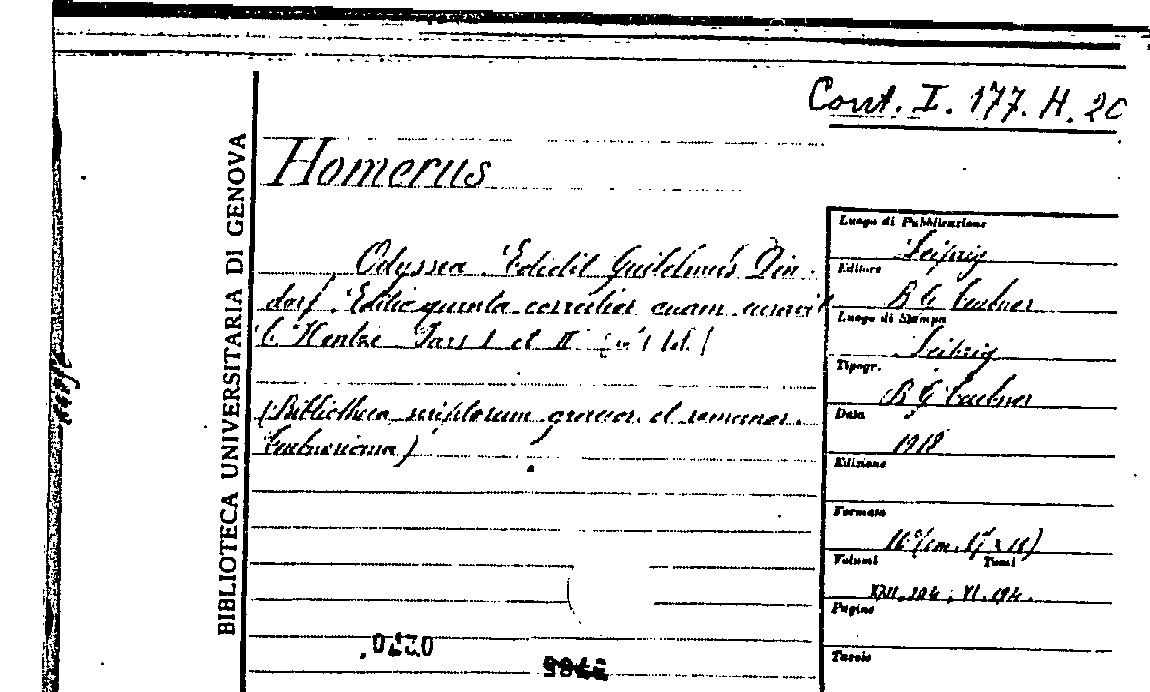 Cont. I. 177. H. 20
BIBLIOTECA UNIVERSITARIA DI GENOVA
Homerus
Odyssea. Edidit Guilelmus Din-
dorf. Editio quinta correctior quam curavit
C. Hentze Pars I et II
(Bibliotheca scriptorum graecor. et romanor.
Teubneriana)
Luogo di Pubblicazione
Leipzig
Editore
B G Teubner
Luogo di Stampa
Leipzig
Tipogr.
B G Teubner
Data
1918
Edizione
Formato
16°(cm.
Volumi Tomi
Pagine
Tavole